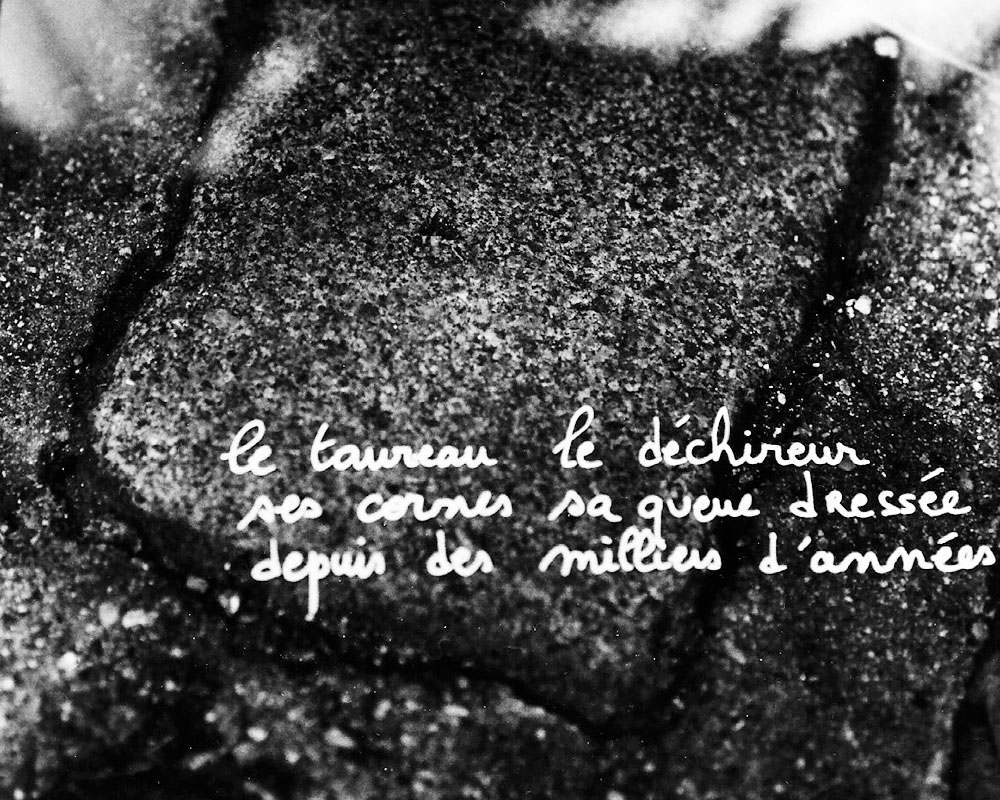 le taureau le déchireur
ses cornes sa queue dressée
depuis des milliers d'années